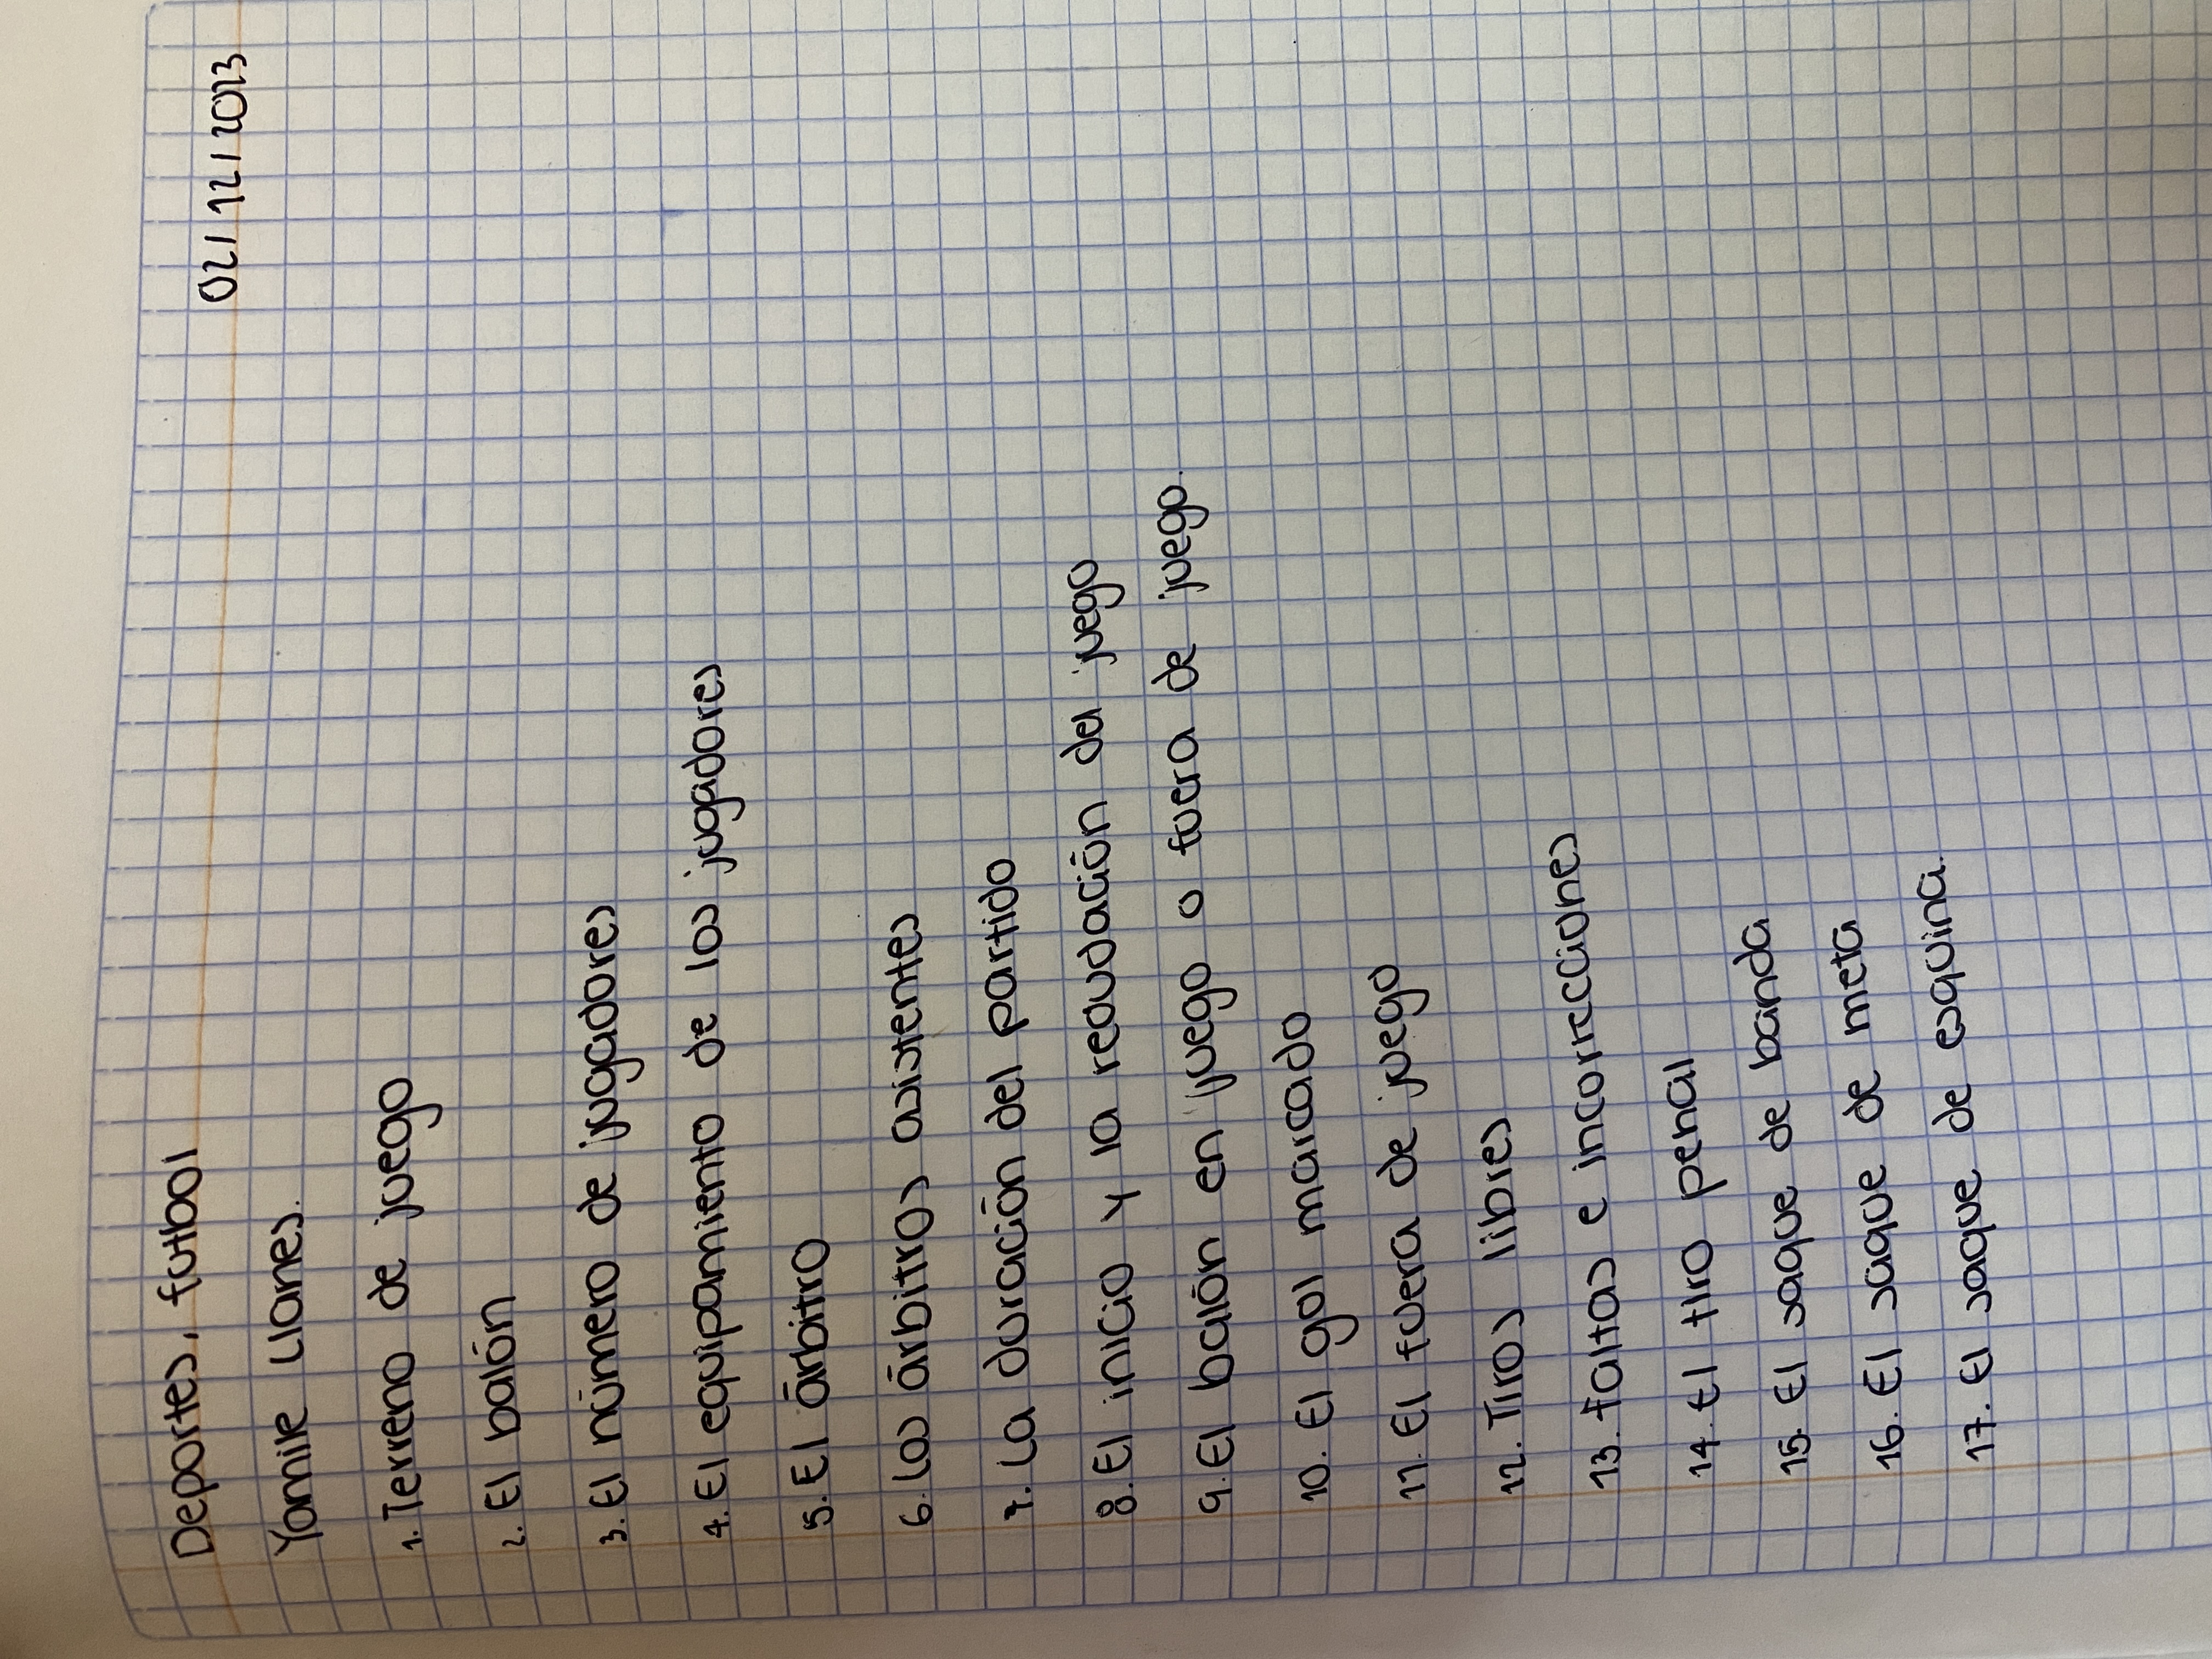 02/12/2023
Deportes, futbol
Yamile Llanes.
1. Terreno de juego
2. El balón
3. El número de jugadores
4. El equipamiento de los jugadores
5. El árbitro
6. Los árbitros asistentes
7. La duración del partido
8. El inicio y la reaudación del juego
9. El balón en juego o fuera de juego.
10. El gol marcado
11. El fuera de juego
12. Tiros libres
13. Faltas e incorrecciones
14. El tiro penal
15. El saque de banda
16. El saque de meta
17. El saque de esquina.